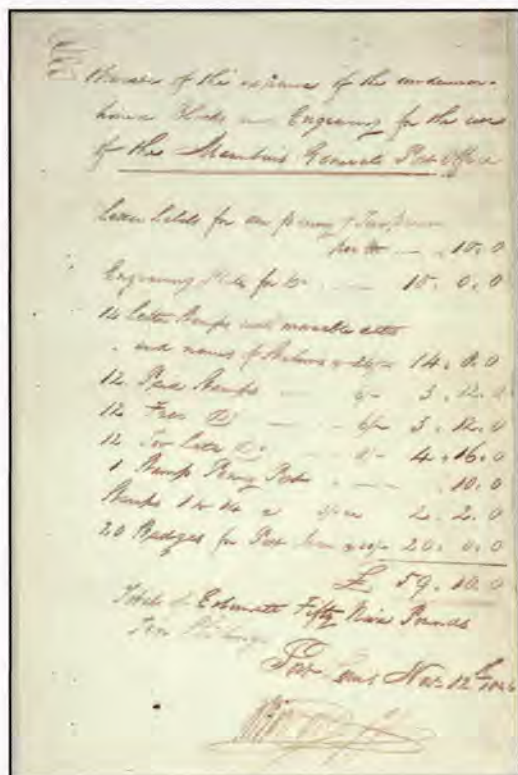 of the expence of the undermen-
and Engraving for the use
of the Mauritius General Post Office
Letter Labels for one penny & Two pence
per - - 10.0
Engraving Plate for Do - - 10.0.0
14 Letter Stamps with movable dates
and names of Stations 14.0.0
12 Paid Stamps - 6/- 3.12.0
12 Free Do - 6/- 3.12.0
12 Too Late Do - 8/- 4.16.0
1 Stamp Penny Post - .10.0
Stamps 1 to 14 a 2.2.0
20 Badges for Post 20.0.0
£ 59.10.0
Total of Estimate Fifty Nine Pounds
Ten Shillings
Port Louis Nov. 12th 1846